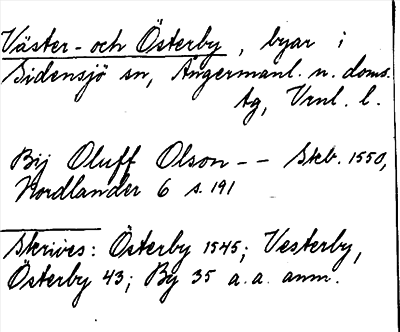 Väster- och Österby, byar i
Sidensjö sn, Ångermanl. n. doms.
tg, Vrnl. l.
Bij Oluff Olson -- Skb. 1550,
Nordlander 6 s. 191
Skrives: Österby 1545; Vesterby,
Österby 43; By 35 a.a. anm.